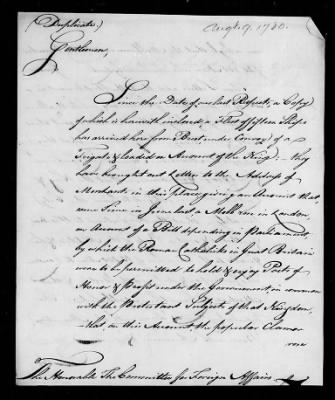 (Duplicate)
Augt. 7. 1780.
Gentlemen,
Since the Date of our last Respects, a Copy
of which is herewith inclosed, a Fleet of fifteen Ships
has arrived here from Brest, under Convoy of a
Frigate, & loaded on Account of the King :— they
have brought out Letters to the Address of
Merchants in this place, giving an Account that
some Time in June last a Mob rose in London,
on Account of a Bill depending in Parliament,
by which the Roman Catholicks in Great Britain
were to be permitted to hold & enjoy Posts of
Honor & Profit under the Government, in common
with the Protestant Subjects of that Kingdom,
—that on this Account the popular Clamor
rose
The Honorable The Committee for Foreign Affairs